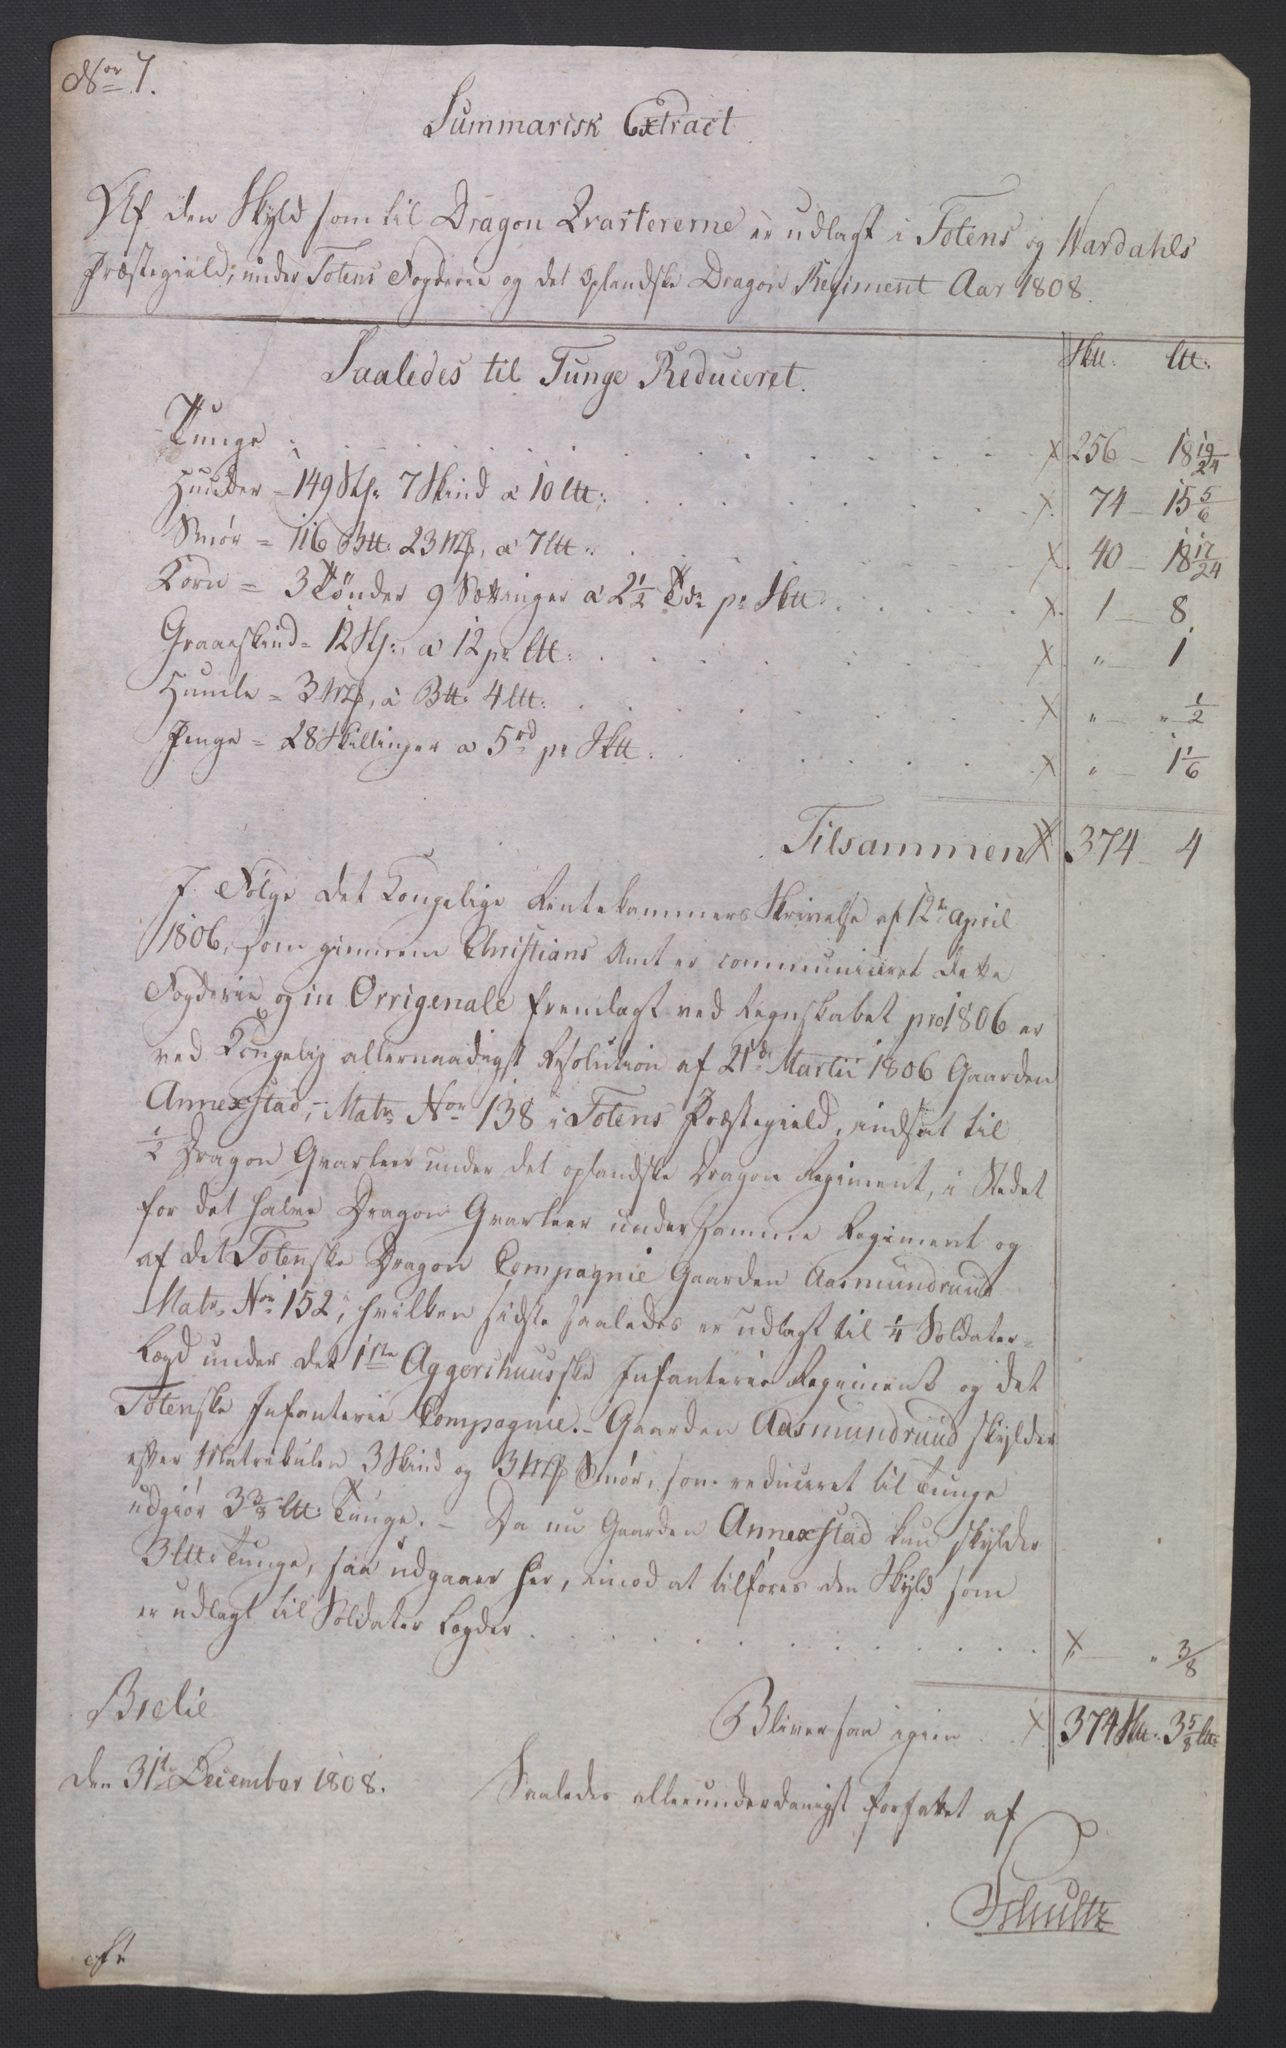 Nor 7.
Summarisk Extract
Af den Skyld som til Dragon Qvartererne er udlagt i Totens og Wardahls
Præstegield, under Totens Fogderie og det Oplandske Dragon Regiment Aar 1808.
Saaledes til Tunge Reduceret. Sktt: ltt:
Tunge . . . 256 – 18 19/24
Huuder = 149 Hr. 7 Skind a 10 ltt: . . . 74 – 15 5/6
Smør = 116 Btt: 23 Mk, a 7 ltt: . . . 40 – 18 17/24
Korn = 3 Tönder 9 Sættinger a 2 1/2 Tdr pr Sktt . . . 1 – 8
Graaeskind = 12 St:, a 12 pr ltt: . . . " – 1
Humle = 3 Mk, a Btt: 4 ltt: . . . " – " 1/2
Penge = 28 Skillinger a 5 rd pr Sktt: . . . " – 1 1/6
Tilsammen 374 – 4
I Følge det Kongelige Rentekammers Skrivelse af 12te April
1806, som giennem Christians Amt er communiceret dette
Fogderie og in Orrigenale fremlagt ved Regnskabet pro 1806 er
ved Kongelig allernaadigst Resolution af 21de Martii 1806 Gaarden
Annexstad, Matr. Nor 138 i Totens Præstegield, indsat til
1/2 Dragon Qvarteer under det oplandske Dragon Regiment, i Stedet
for det halve Dragon Qvarteer under samme Regiment og
af det Totenske Dragon Compagnie Gaarden Aasmundruud
Matr. Nor 152, hvilken sidste saaledes er udlagt til 1/4 Soldater-
Lægd under det 1ste Aggershuusske Infanterie Regiment og det
Totenske Infanterie Compagnie. – Gaarden Aasmundruud skylder
efter Matrikulen 3 Skind og 3 Mk Smør, som reduceret til Tunge
udgiør 3 3/8 ltt: Tunge. – Da nu Gaarden Annexstad kun skylder
3 ltt: Tunge, saa udgaaer her, imod at tilføres den Skyld som
er udlagt til Soldater Lægder . . . " – " 3/8
Bliver saa igien . . 374 Sktt: 3 5/8 ltt:
Bielie
den 31te December 1808.
Saaledes allerunderdanigst forfattet af
Schultz